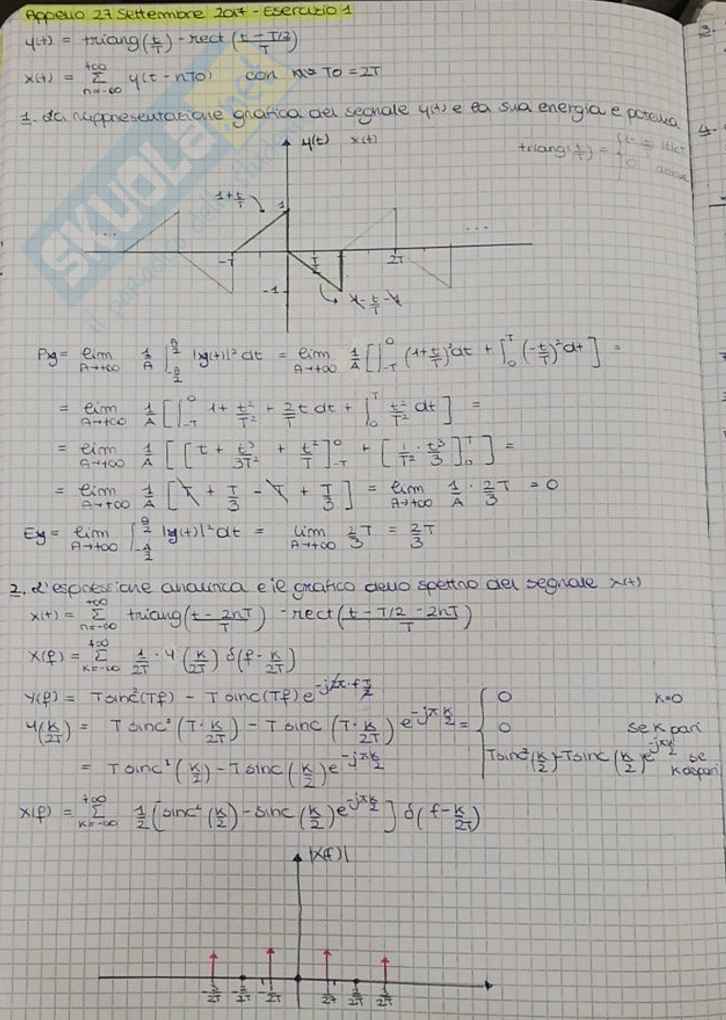 Appello 27 Settembre 2017 - Esercizio 1
y(t) = triang(t/T) - rect((t-T/2)/T)
x(t) = Σ_{n=-∞}^{+∞} y(t-nT0) con T0 = 2T
1. La rappresentazione grafica del segnale y(t) e la sua energia e potenza
triang(t/T) =
y(t) x(t)
1+t/T
1
...
...
-T
T/2
2T
-1
Py = lim_{A→+∞} 1/A ∫_{-A/2}^{A/2} |y(t)|² dt = lim_{A→+∞} 1/A [∫_{-T}^{0} (1+t/T)² dt + ∫_{0}^{T} (-t/T)² dt] =
= lim_{A→+∞} 1/A [∫_{-T}^{0} 1 + t²/T² + 2/T t dt + ∫_{0}^{T} t²/T² dt] =
= lim_{A→+∞} 1/A [[t + t³/3T² + t²/T]_{-T}^{0} + [1/T² · t³/3]_{0}^{T}] =
= lim_{A→+∞} 1/A [T + T/3 - T + T/3] = lim_{A→+∞} 1/A · 2/3 T = 0
Ey = lim_{A→+∞} ∫_{-A/2}^{A/2} |y(t)|² dt = lim_{A→+∞} 2/3 T = 2T/3
2. L'espressione analitica e il grafico dello spettro del segnale x(t)
x(t) = Σ_{n=-∞}^{+∞} triang((t-2nT)/T) - rect((t-T/2-2nT)/T)
X(f) = Σ_{k=-∞}^{+∞} 1/2T · Y(k/2T) δ(f-k/2T)
Y(f) = T sinc²(Tf) - T sinc(Tf) e^{-j2π·f T/2}
Y(k/2T) = T sinc²(T·k/2T) - T sinc(T·k/2T) e^{-jπ k/2} = { 0 k=0
= T sinc²(k/2) - T sinc(k/2) e^{-jπ k/2} 0 se k pari
T sinc²(k/2) - T sinc(k/2) e^{-jπ k/2} se k dispari
X(f) = Σ_{k=-∞}^{+∞} 1/2 [sinc²(k/2) - sinc(k/2) e^{-jπ k/2}] δ(f-k/2T)
|X(f)|
-3/2T -2/2T -1/2T 1/2T 2/2T 3/2T
SKUOLA.net